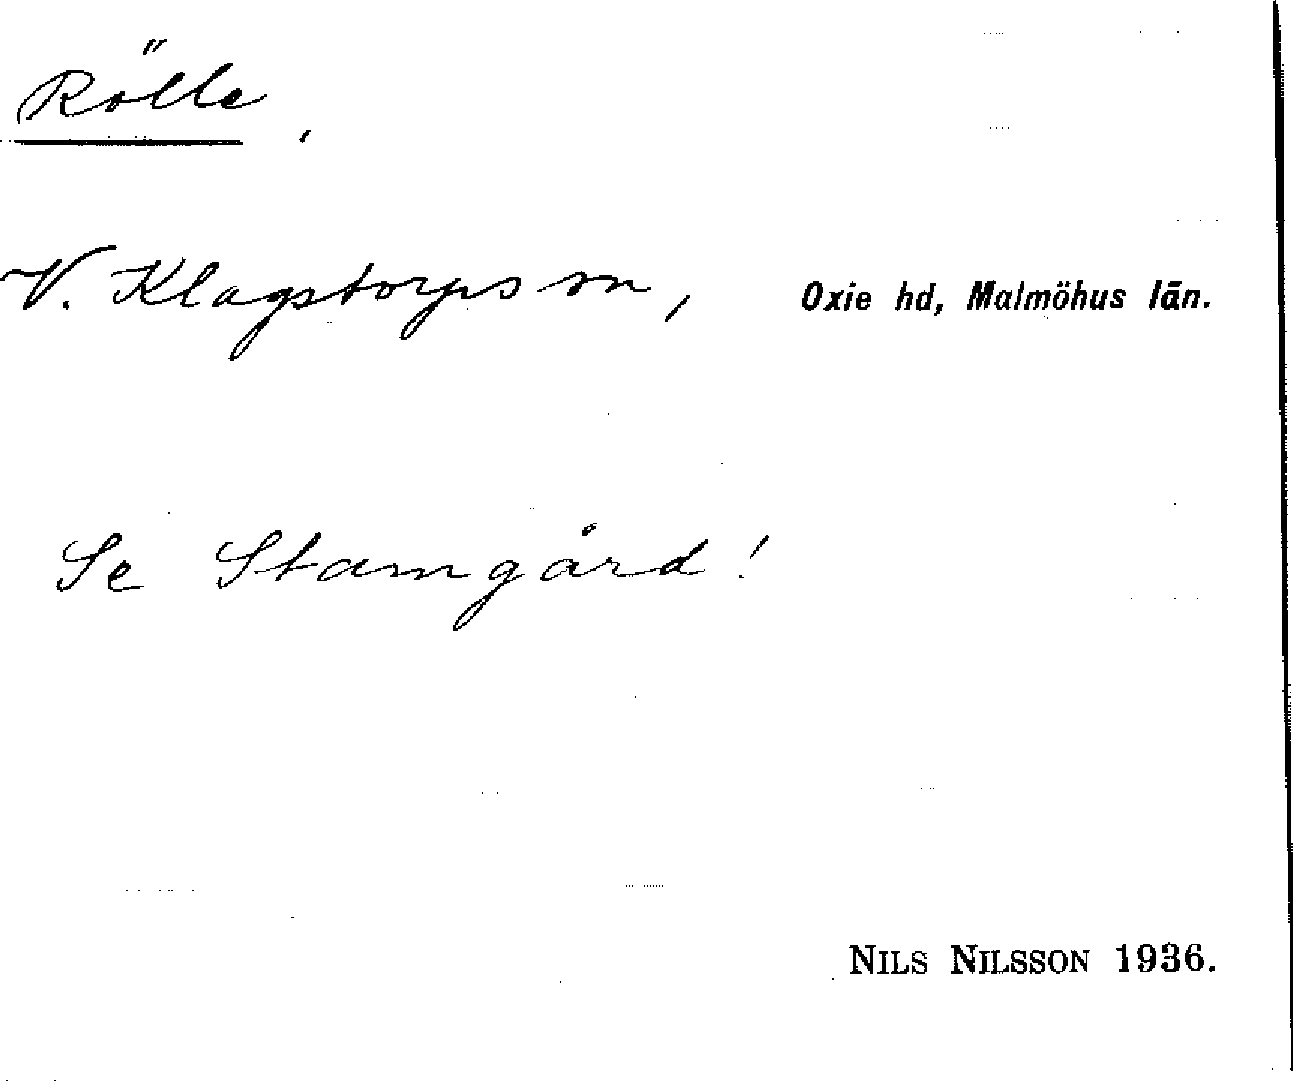 Rölle,
V. Klagstorps sn, Oxie hd, Malmöhus län.
Se Stamgård!
NILS NILSSON 1936.